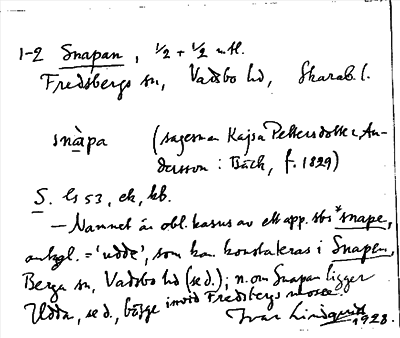 1-2 Snapan, 1/2 + 1/2 mtl.
Fredsbergs sn, Vadsbo hd, Skarab. l.
snàpa (sagesman Kajsa Pettersdotter An-
dersson i Bäck, f. 1829)
S. ls 53, ek, kb.
— Namnet är obl. kasus av ett app. sbs *snape,
antagl. = 'udde', som kan konstateras i Snapen,
Berga sn, Vadsbo hd (se d.); n. om Snapan ligger
Udda, se d., båge invid Fredsbergs mosse.
Ivar Lindquist 1928.